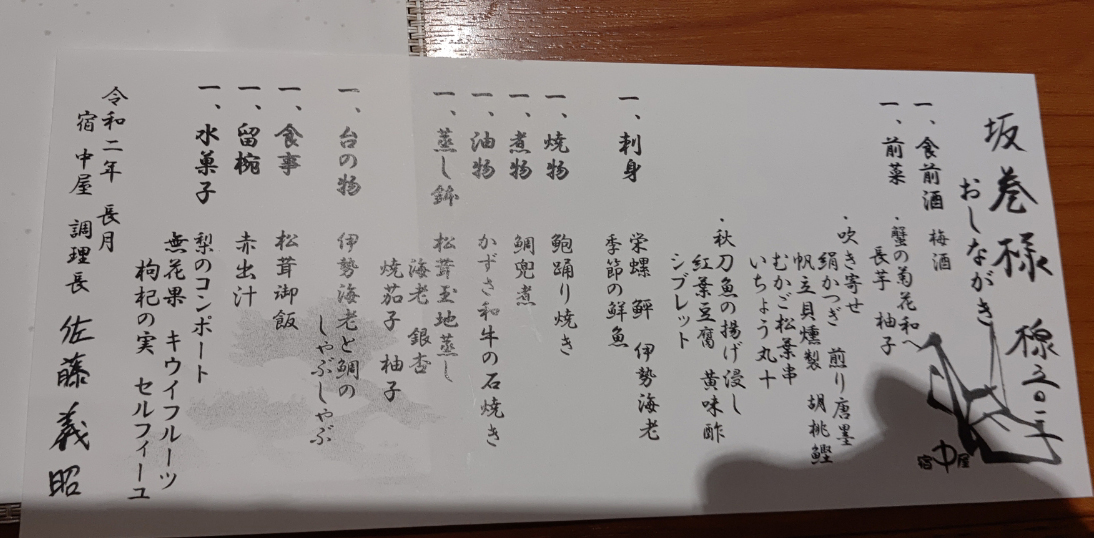 坂巻様
おしながき
一、食前酒　梅酒
一、前菜
・蟹の菊花和へ
長芋　柚子
・吹き寄せ
絹かつぎ　煎り唐墨
帆立貝燻製　胡桃鰹
むかご松葉串
いちょう丸十
・秋刀魚の揚げ浸し
紅葉豆腐　黄味酢
シブレット
一、刺身
栄螺　鮃　伊勢海老
季節の鮮魚
一、焼物　鮑踊り焼き
一、煮物　鯛兜煮
一、油物　かずさ和牛の石焼き
一、蒸し鉢　松茸玉地蒸し
海老　銀杏
焼茄子　柚子
一、台の物　伊勢海老と鯛の
しゃぶしゃぶ
一、食事　松茸御飯
一、留椀　赤出汁
一、水菓子　梨のコンポート
無花果　キウイフルーツ
枸杞の実　セルフィーユ
令和二年　長月
宿　中屋　調理長　佐藤義昭
宿中屋